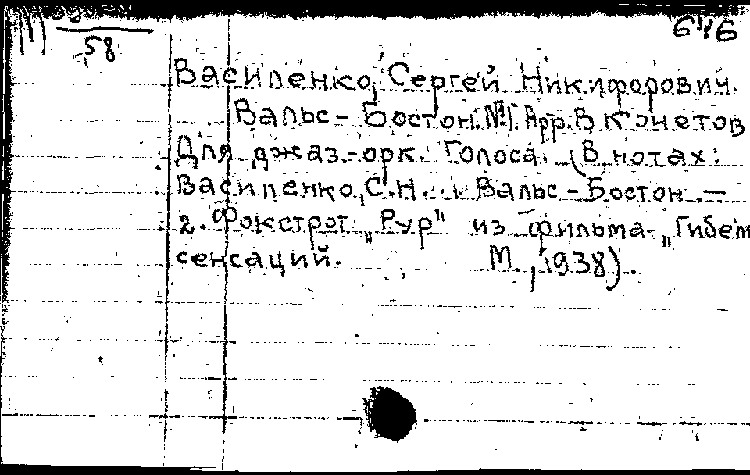 58
Василенко, Сергей Никифорович.
Вальс-Бостон. №1. Арр. В. Кочетов
Для джаз.-орк. Голоса. (В нотах:
Василенко, С.Н. Вальс-Бостон. —
2. Фокстрот „Рур" из фильма „Гибел
сенсаций. М., 1938).